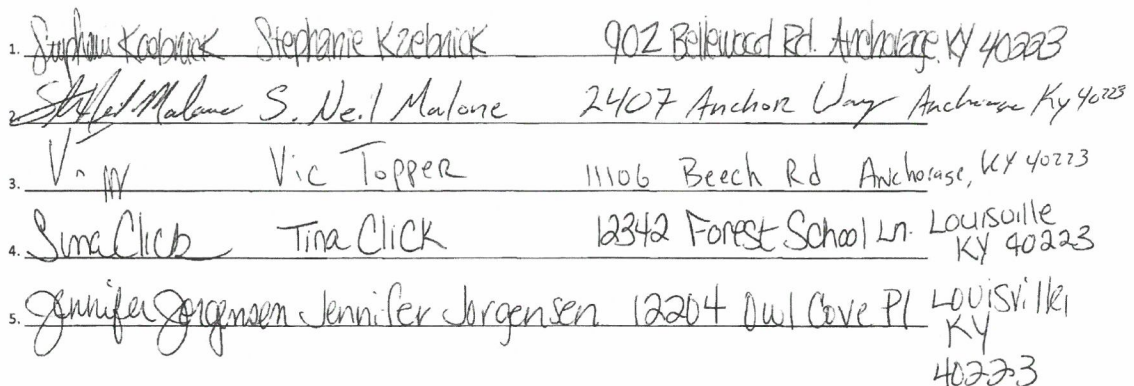 1. Stephanie Kzebnick 902 Bellewood Rd. Anchorage, KY 40223
2. S. Neil Malone 2407 Anchor Way Anchorage Ky 40223
3. Vic Topper 11106 Beech Rd Anchorage, KY 40223
4. Tina Click Tina Click 12342 Forest School Ln. Louisville
KY 40223
5. Jennifer Jorgensen Jennifer Jorgensen 12204 Owl Cove Pl Louisville,
KY
40223